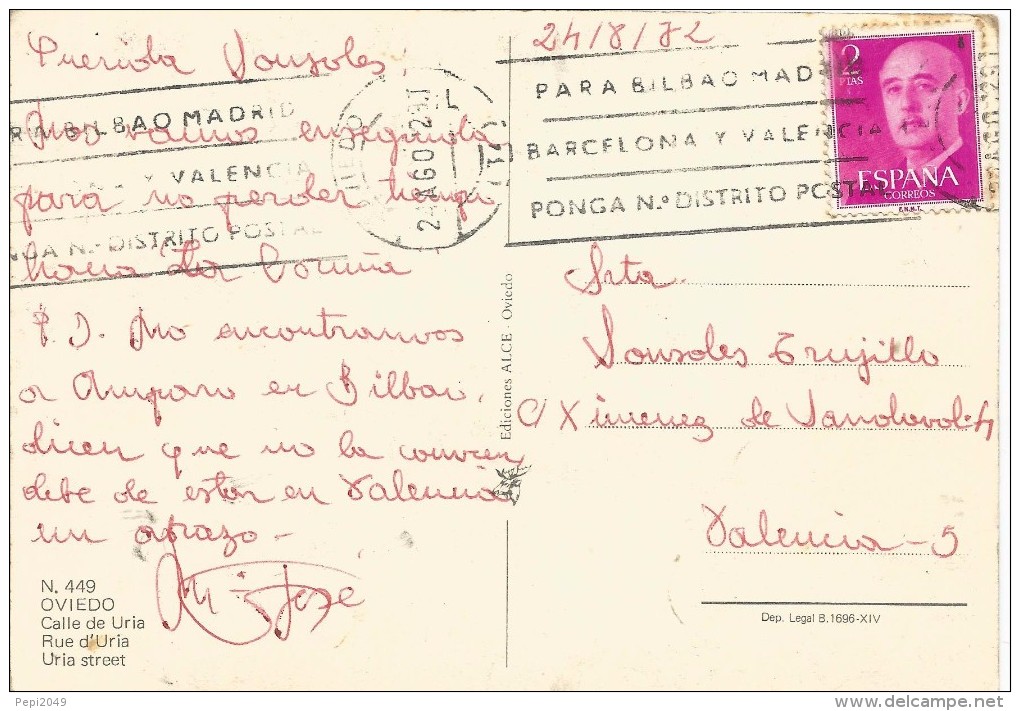 24/8/72
Querida Sonsoles:
Nos vamos enseguida
para no perder tiempo
hacia La Coruña
P.D. No encontramos
a Amparo en Bilbao,
dicen que no la conocen
debe de estar en Valencia
un abrazo -
Mª José
N. 449
OVIEDO
Calle de Uria
Rue d'Uria
Uria street
Ediciones ALCE - Oviedo
PARA BILBAO MADRID
BARCELONA Y VALENCIA
PONGA N.º DISTRITO POSTAL
RA BILBAO MADRID
Y VALENCIA
NGA N.º DISTRITO POSTAL
2
PTAS
ESPAÑA
CORREOS
F.N.M.T.
Srta.
Sonsoles Trujillo
C/ Ximenez de Sandoval-4
Valencia - 5
Dep. Legal B.1696-XIV
Pepi2049
www.delcampe.net